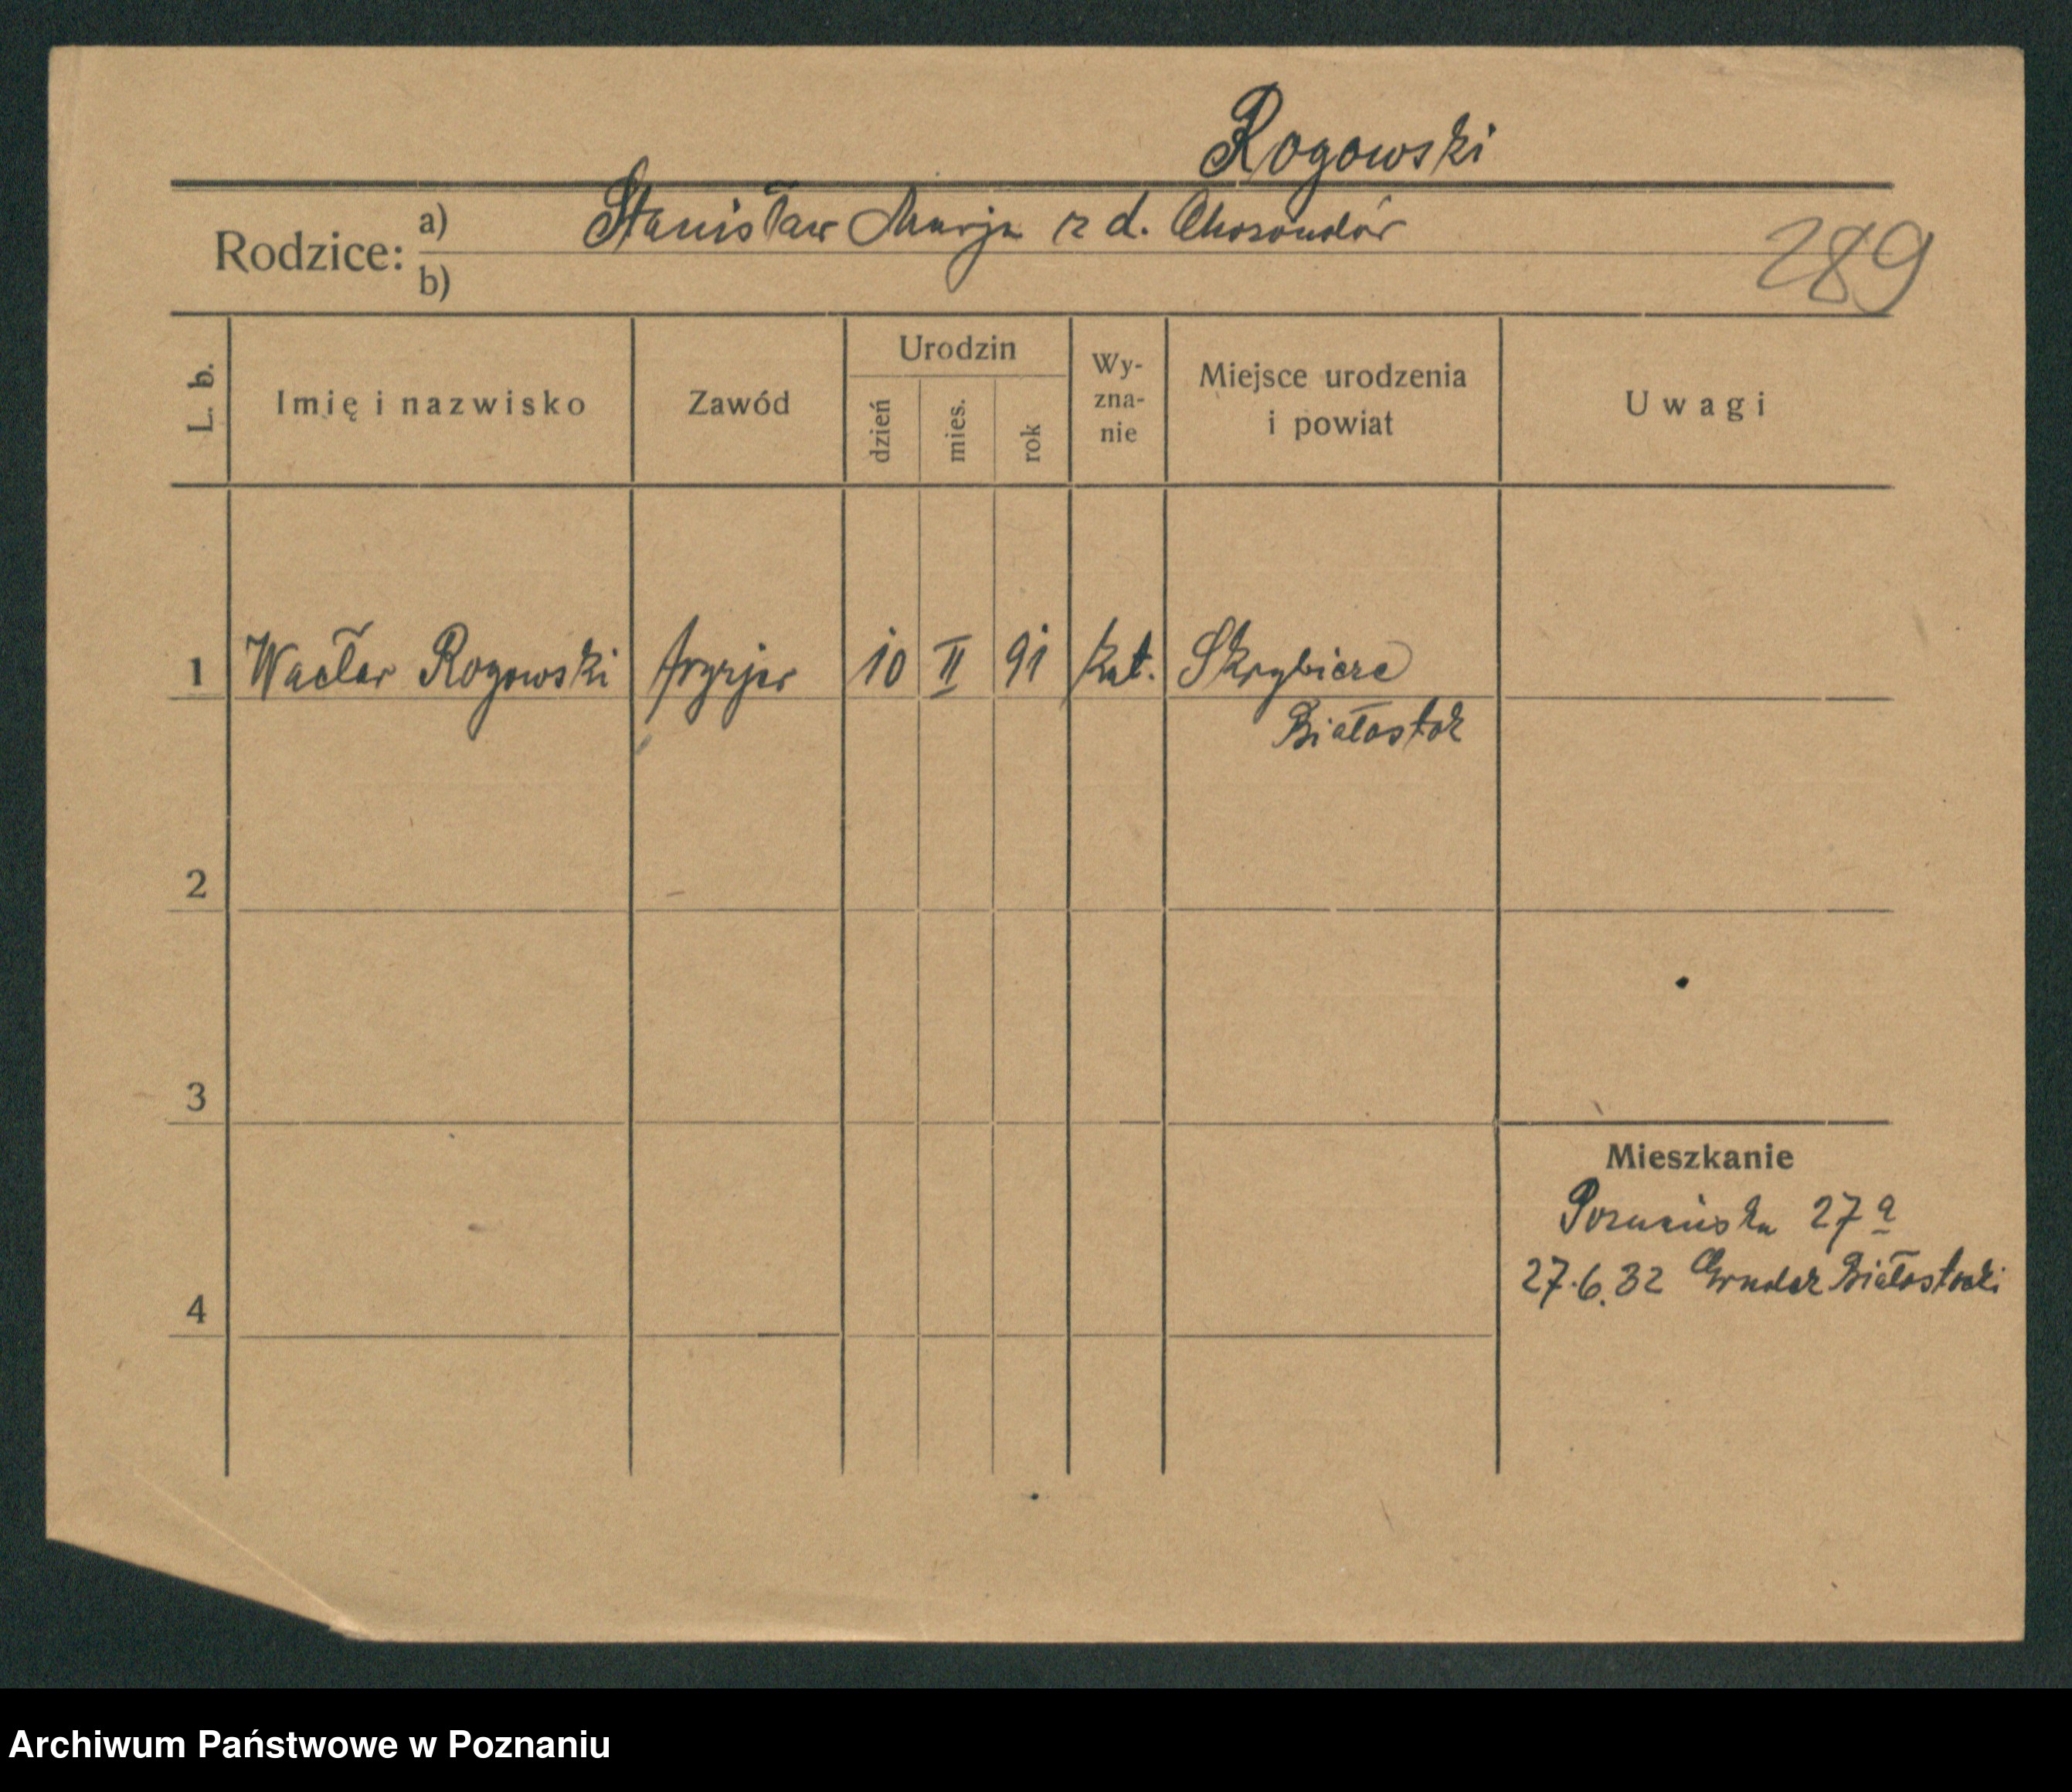 Rogowski
Rodzice: a) Stanisław Marja z d.
b)
289
L. b. Imię i nazwisko Zawód Urodzin dzień mies. rok Wy-zna-nie Miejsce urodzenia i powiat Uwagi
1 Wacław Rogowski fryzjer 10 II 91 kat.
Białostok
2
3
Mieszkanie
Poznańska 27a
27.6.32 Białostocki
4
Archiwum Państwowe w Poznaniu